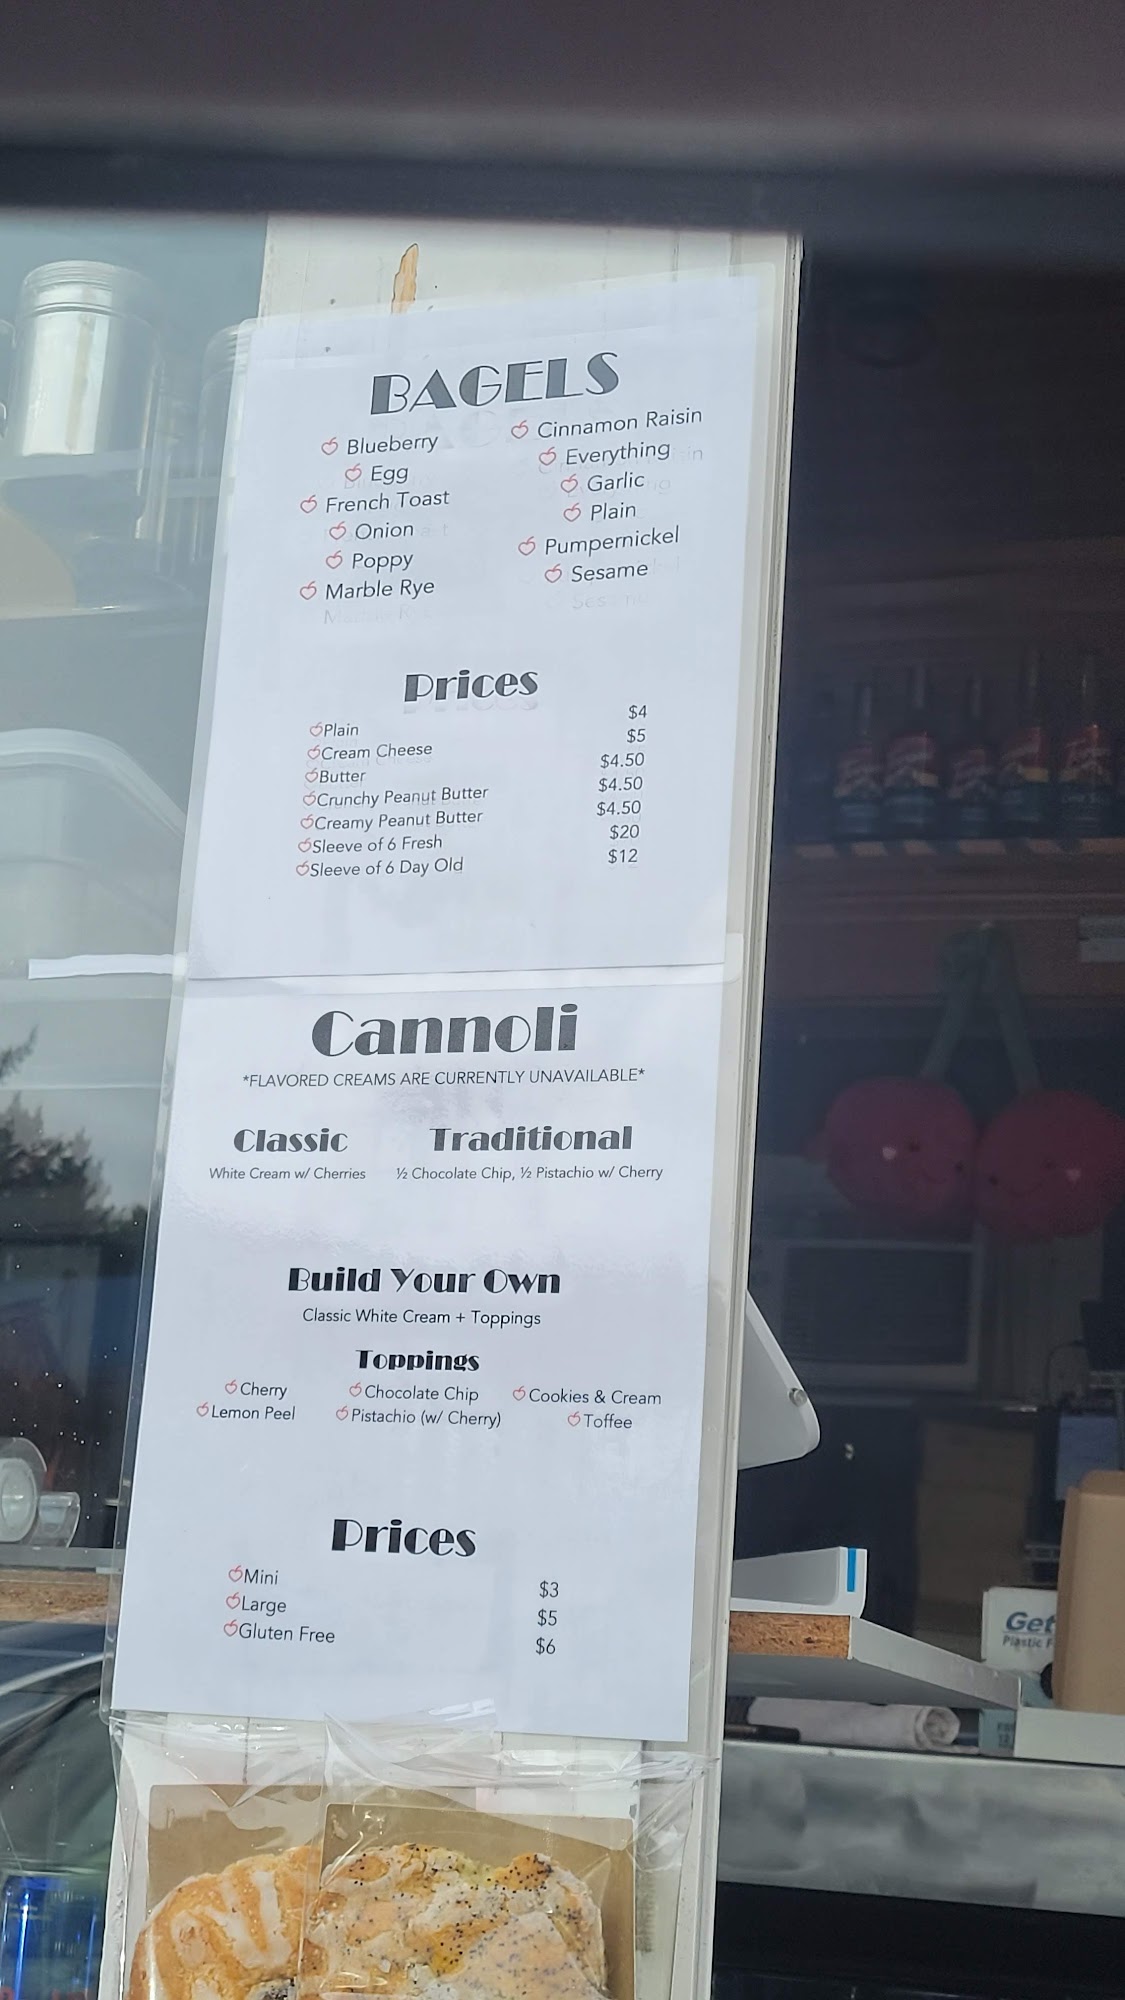 BAGELS
Blueberry
Egg
French Toast
Onion
Poppy
Marble Rye
Cinnamon Raisin
Everything
Garlic
Plain
Pumpernickel
Sesame
Prices
Plain $4
Cream Cheese $5
Butter $4.50
Crunchy Peanut Butter $4.50
Creamy Peanut Butter $4.50
Sleeve of 6 Fresh $20
Sleeve of 6 Day Old $12
Cannoli
*FLAVORED CREAMS ARE CURRENTLY UNAVAILABLE*
Classic
White Cream w/ Cherries
Traditional
½ Chocolate Chip, ½ Pistachio w/ Cherry
Build Your Own
Classic White Cream + Toppings
Toppings
Cherry Chocolate Chip Cookies & Cream
Lemon Peel Pistachio (w/ Cherry) Toffee
Prices
Mini $3
Large $5
Gluten Free $6
Get
Plastic